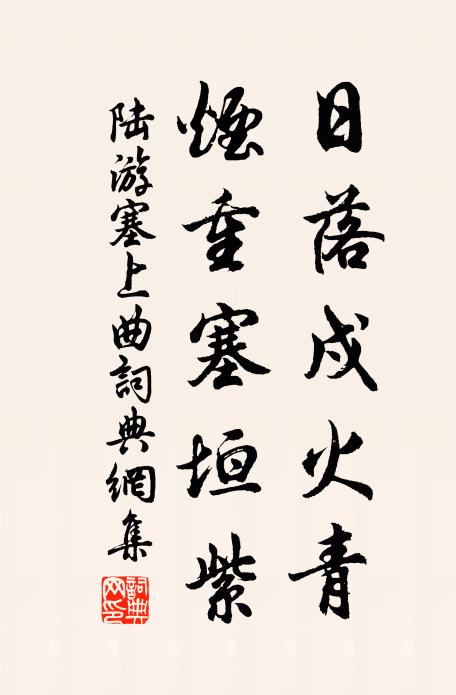 日落戍火青
煙重塞垣紫
陆游塞上曲詞典網集
詞典网印